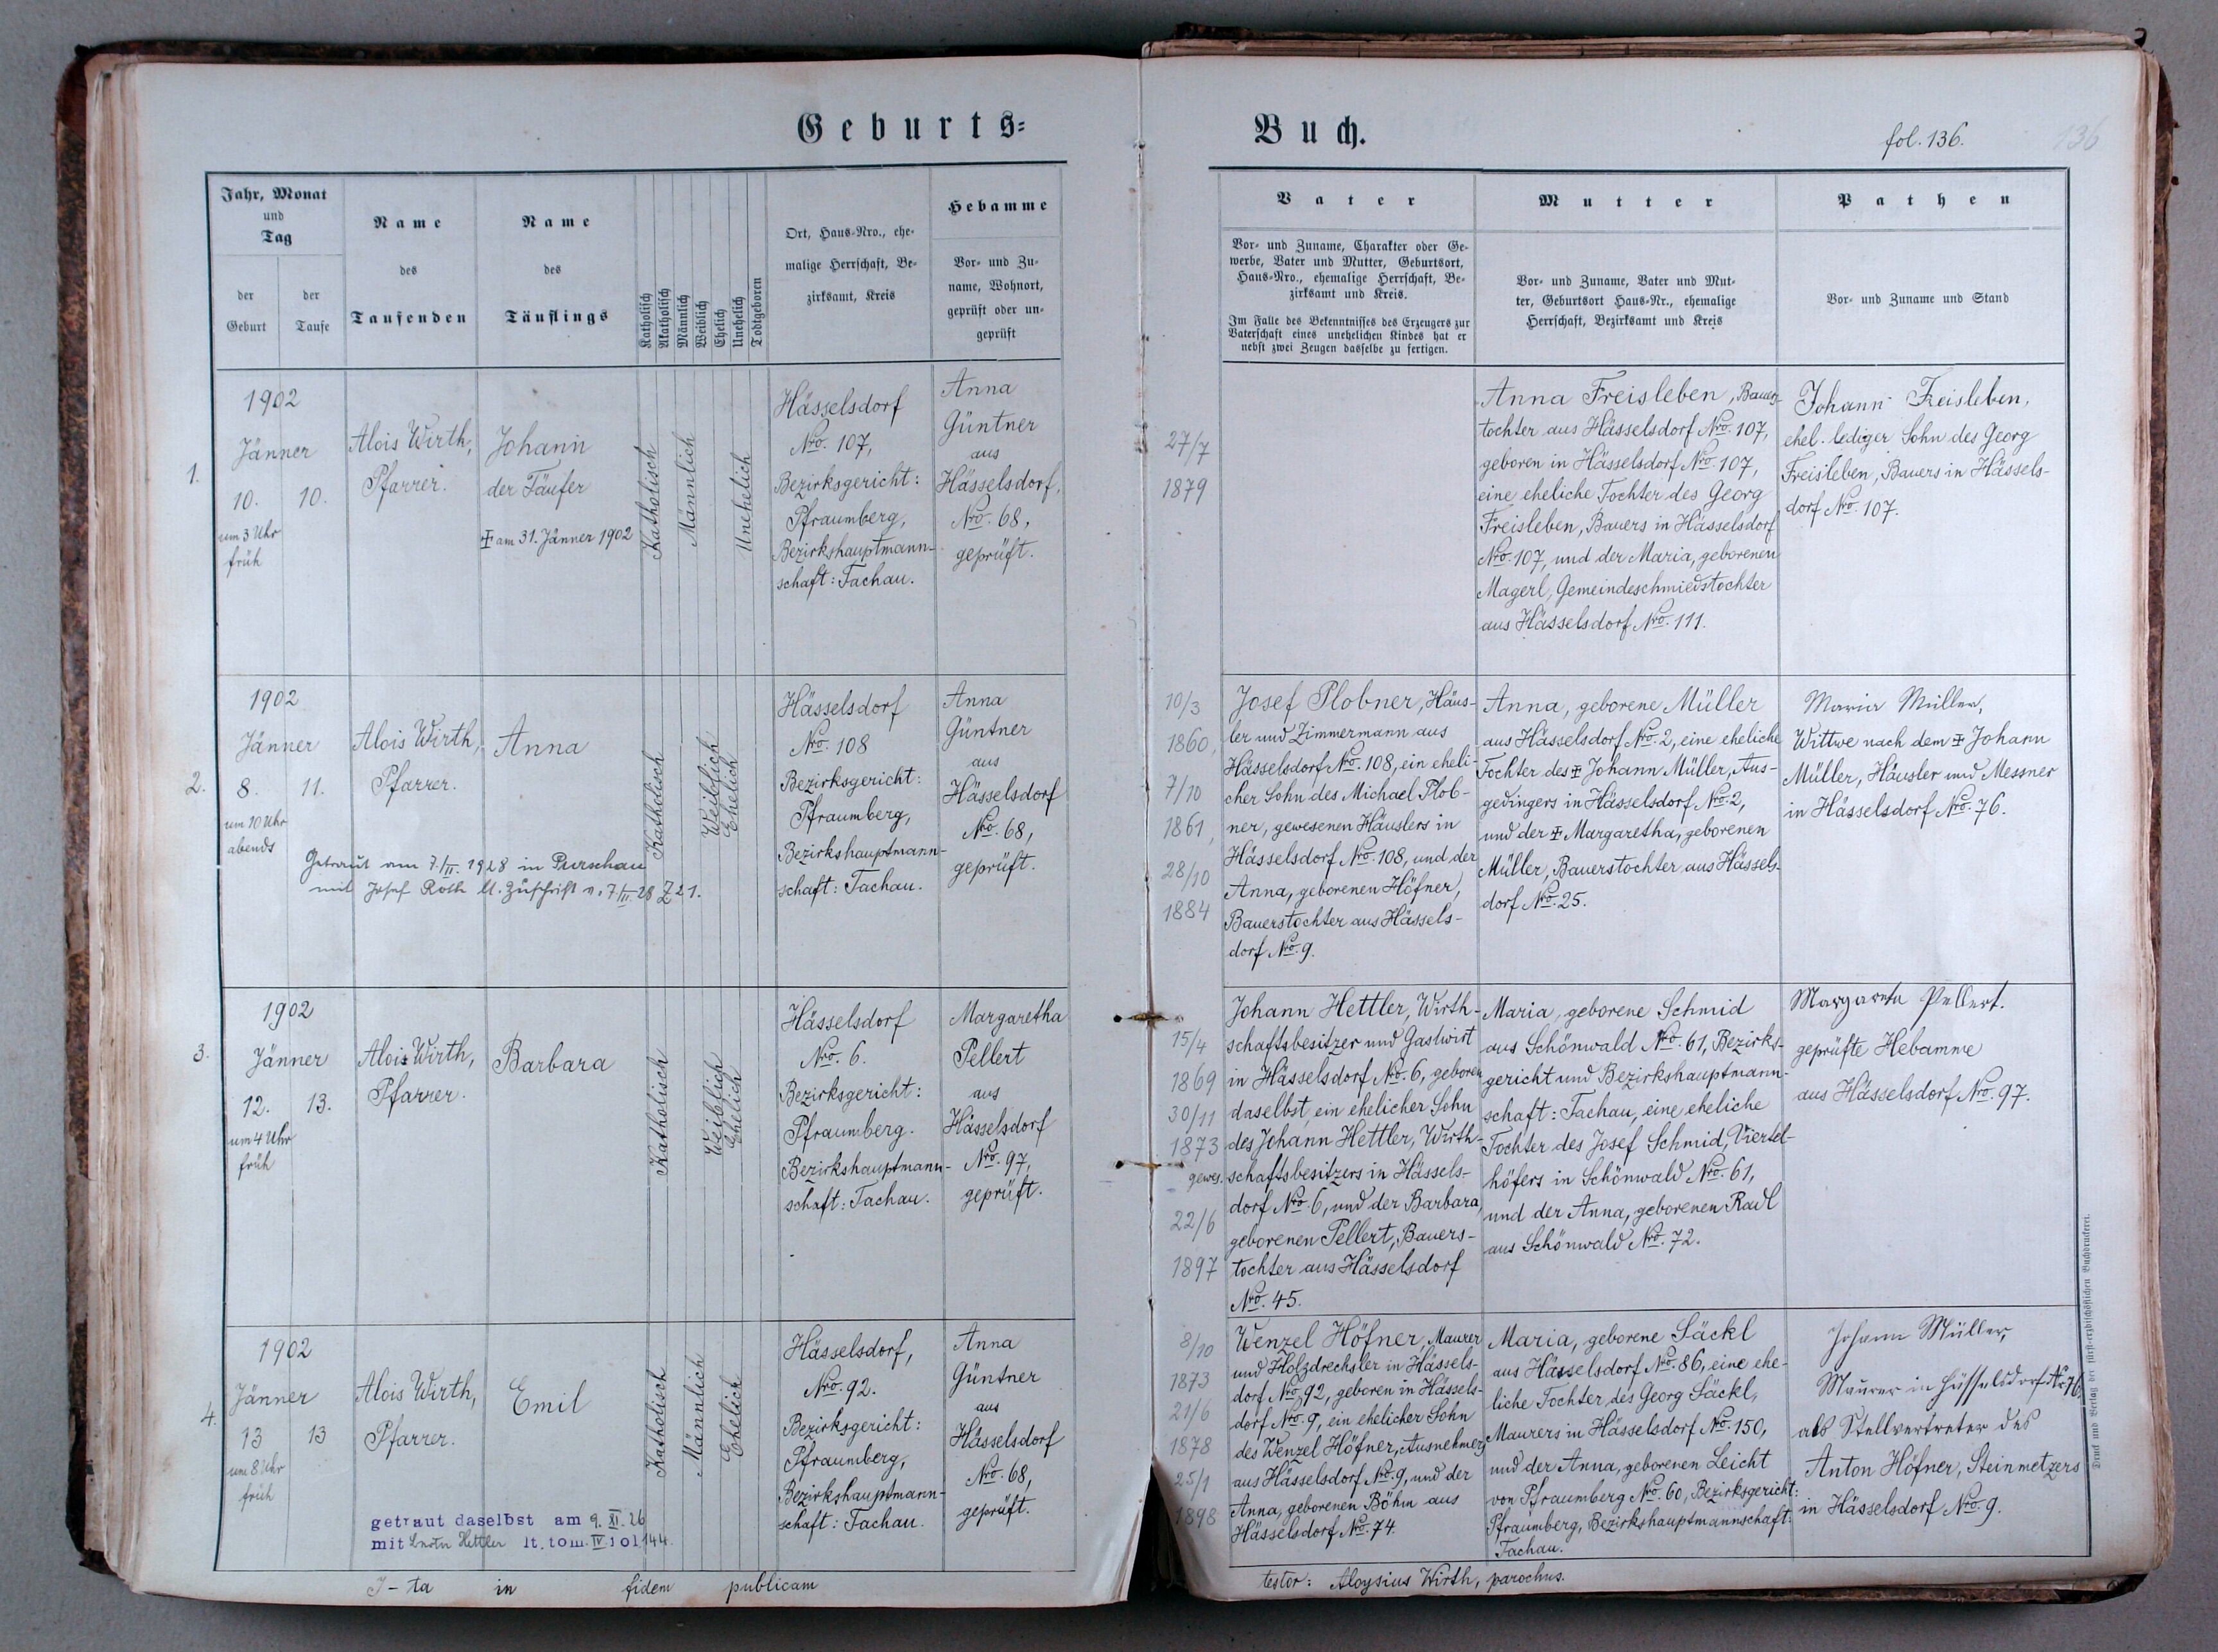 Geburts=
Buch.
fol. 136.
136
Jahr, Monat
und
Tag
der
Geburt
der
Taufe
Name
des
Taufenden
Name
des
Täuflings
Katholisch
Akatholisch
Männlich
Weiblich
Ehelich
Unehelich
Todtgeboren
Ort, Haus-Nro., ehe-
malige Herrschaft, Be-
zirksamt, Kreis
Hebamme
Vor- und Zu-
name, Wohnort,
geprüft oder un-
geprüft
Vater
Vor- und Zuname, Charakter oder Ge-
werbe, Vater und Mutter, Geburtsort,
Haus-Nro., ehemalige Herrschaft, Be-
zirksamt und Kreis.
Im Falle des Bekenntnisses des Erzeugers zur
Vaterschaft eines unehelichen Kindes hat er
nebst zwei Zeugen dasselbe zu fertigen.
Mutter
Vor- und Zuname, Vater und Mut-
ter, Geburtsort Haus-Nr., ehemalige
Herrschaft, Bezirksamt und Kreis
Pathen
Vor- und Zuname und Stand
1.
1902
Jänner
10.
10.
um 3 Uhr
früh
Alois Wirth,
Pfarrer.
Johann
der Täufer
‡ am 31. Jänner 1902
Katholisch
Männlich
Unehelich
Hässelsdorf
Nro. 107,
Bezirksgericht:
Pfraumberg,
Bezirkshauptmann-
schaft: Tachau.
Anna
Güntner
aus
Hässelsdorf,
Nro. 68,
geprüft.
27/7
1879
Anna Freisleben, Bauers-
tochter aus Hässelsdorf Nro. 107,
geboren in Hässelsdorf Nro. 107,
eine eheliche Tochter des Georg
Freisleben, Bauers in Hässelsdorf
Nro. 107, und der Maria, geborenen
Magerl, Gemeindeschmiedstochter
aus Hässelsdorf Nro. 111.
Johann Freisleben,
ehel. lediger Sohn des Georg
Freisleben, Bauers in Hässels-
dorf Nro. 107.
2.
1902
Jänner
8.
11.
um 10 Uhr
abends
Alois Wirth,
Pfarrer.
Anna
Getraut am 7./II. 1928 in Purschau
mit Josef Roth lt. Zuschrift v. 7/III. 28 Z 21.
Katholisch
Weiblich
Ehelich
Hässelsdorf
Nro. 108
Bezirksgericht:
Pfraumberg,
Bezirkshauptmann-
schaft: Tachau.
Anna
Güntner
aus
Hässelsdorf
Nro. 68,
geprüft.
10/3
1860,
7/10
1861,
28/10
1884
Josef Plobner, Häus-
ler und Zimmermann aus
Hässelsdorf Nro. 108, ein eheli-
cher Sohn des Michael Plob-
ner, gewesenen Häuslers in
Hässelsdorf Nro. 108, und der
Anna, geborenen Höfner,
Bauerstochter aus Hässels-
dorf Nro. 9.
Anna, geborene Müller
aus Hässelsdorf Nro. 2, eine eheliche
Tochter des ‡ Johann Müller, Aus-
gedingers in Hässelsdorf Nro. 2,
und der ‡ Margaretha, geborenen
Müller, Bauerstochter aus Hässels-
dorf Nro. 25.
Maria Müller,
Wittwe nach dem ‡ Johann
Müller, Häusler und Messner
in Hässelsdorf Nro. 76.
3.
1902
Jänner
12.
13.
um 4 Uhr
früh
Alois Wirth,
Pfarrer.
Barbara
Katholisch
Weiblich
Ehelich
Hässelsdorf
Nro. 6.
Bezirksgericht:
Pfraumberg.
Bezirkshauptmann-
schaft: Tachau.
Margaretha
Pellert
aus
Hässelsdorf
Nro. 97,
geprüft.
15/4
1869
30/11
1873
gewes.
22/6
1897
Johann Hettler, Wirth-
schaftsbesitzer und Gastwirt
in Hässelsdorf Nro. 6, geboren
daselbst, ein ehelicher Sohn
des Johann Hettler, Wirth-
schaftsbesitzers in Hässels-
dorf Nro. 6, und der Barbara,
geborenen Pellert, Bauers-
tochter aus Hässelsdorf
Nro. 45.
Maria, geborene Schmid
aus Schönwald Nro. 61, Bezirks-
gericht und Bezirkshauptmann-
schaft: Tachau, eine eheliche
Tochter des Josef Schmid, Viertel-
höfers in Schönwald Nro. 61,
und der Anna, geborenen Radl
aus Schönwald Nro. 72.
Margareta Pellert.
geprüfte Hebamme
aus Hässelsdorf Nro. 97.
4.
1902
Jänner
13
13
um 8 Uhr
früh
Alois Wirth,
Pfarrer.
Emil
getraut daselbst am 9. XI. 26
mit Hettler lt. tom. IV fol 144.
Katholisch
Männlich
Ehelich
Hässelsdorf,
Nro. 92.
Bezirksgericht:
Pfraumberg,
Bezirkshauptmann-
schaft: Tachau.
Anna
Güntner
aus
Hässelsdorf
Nro. 68,
geprüft.
8/10
1873
21/6
1878
25/1
1898
Wenzel Höfner, Maurer
und Holzdrechsler in Hässels-
dorf Nro. 92, geboren in Hässels-
dorf Nro. 9, ein ehelicher Sohn
des Wenzel Höfner, Ausnehmers
aus Hässelsdorf Nro. 9, und der
Anna, geborenen Böhm aus
Hässelsdorf Nro. 74.
Maria, geborene Säckl
aus Hässelsdorf Nro. 86, eine ehe-
liche Tochter des Georg Säckl,
Maurers in Hässelsdorf Nro. 150,
und der Anna, geborenen Leicht
von Pfraumberg Nro. 60, Bezirksgericht:
Pfraumberg, Bezirkshauptmannschaft:
Tachau.
Johann Müller,
Maurer in Hässelsdorf Nr 76,
als Stellvertreter des
Anton Höfner, Steinmetzers
in Hässelsdorf Nro. 9.
I-ta in fidem publicam
testor: Aloysius Wirth, parochus.
Druck und Verlag der fürst-erzbischöflichen Buchdruckerei.